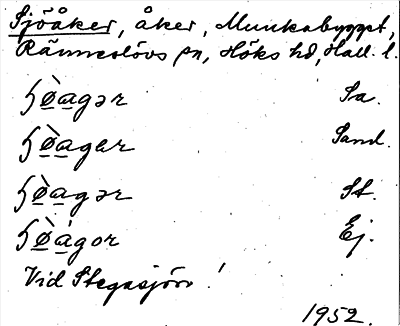 Sjöåker, åker, Munkabygget,
Ränneslövs sn, Höks hd, Hall. l.
ɧø̀agər Sa.
ɧø̀agar Sand.
ɧø̀agər St.
ɧø̀ágor Ej.
Vid Stegasjön!
1952.